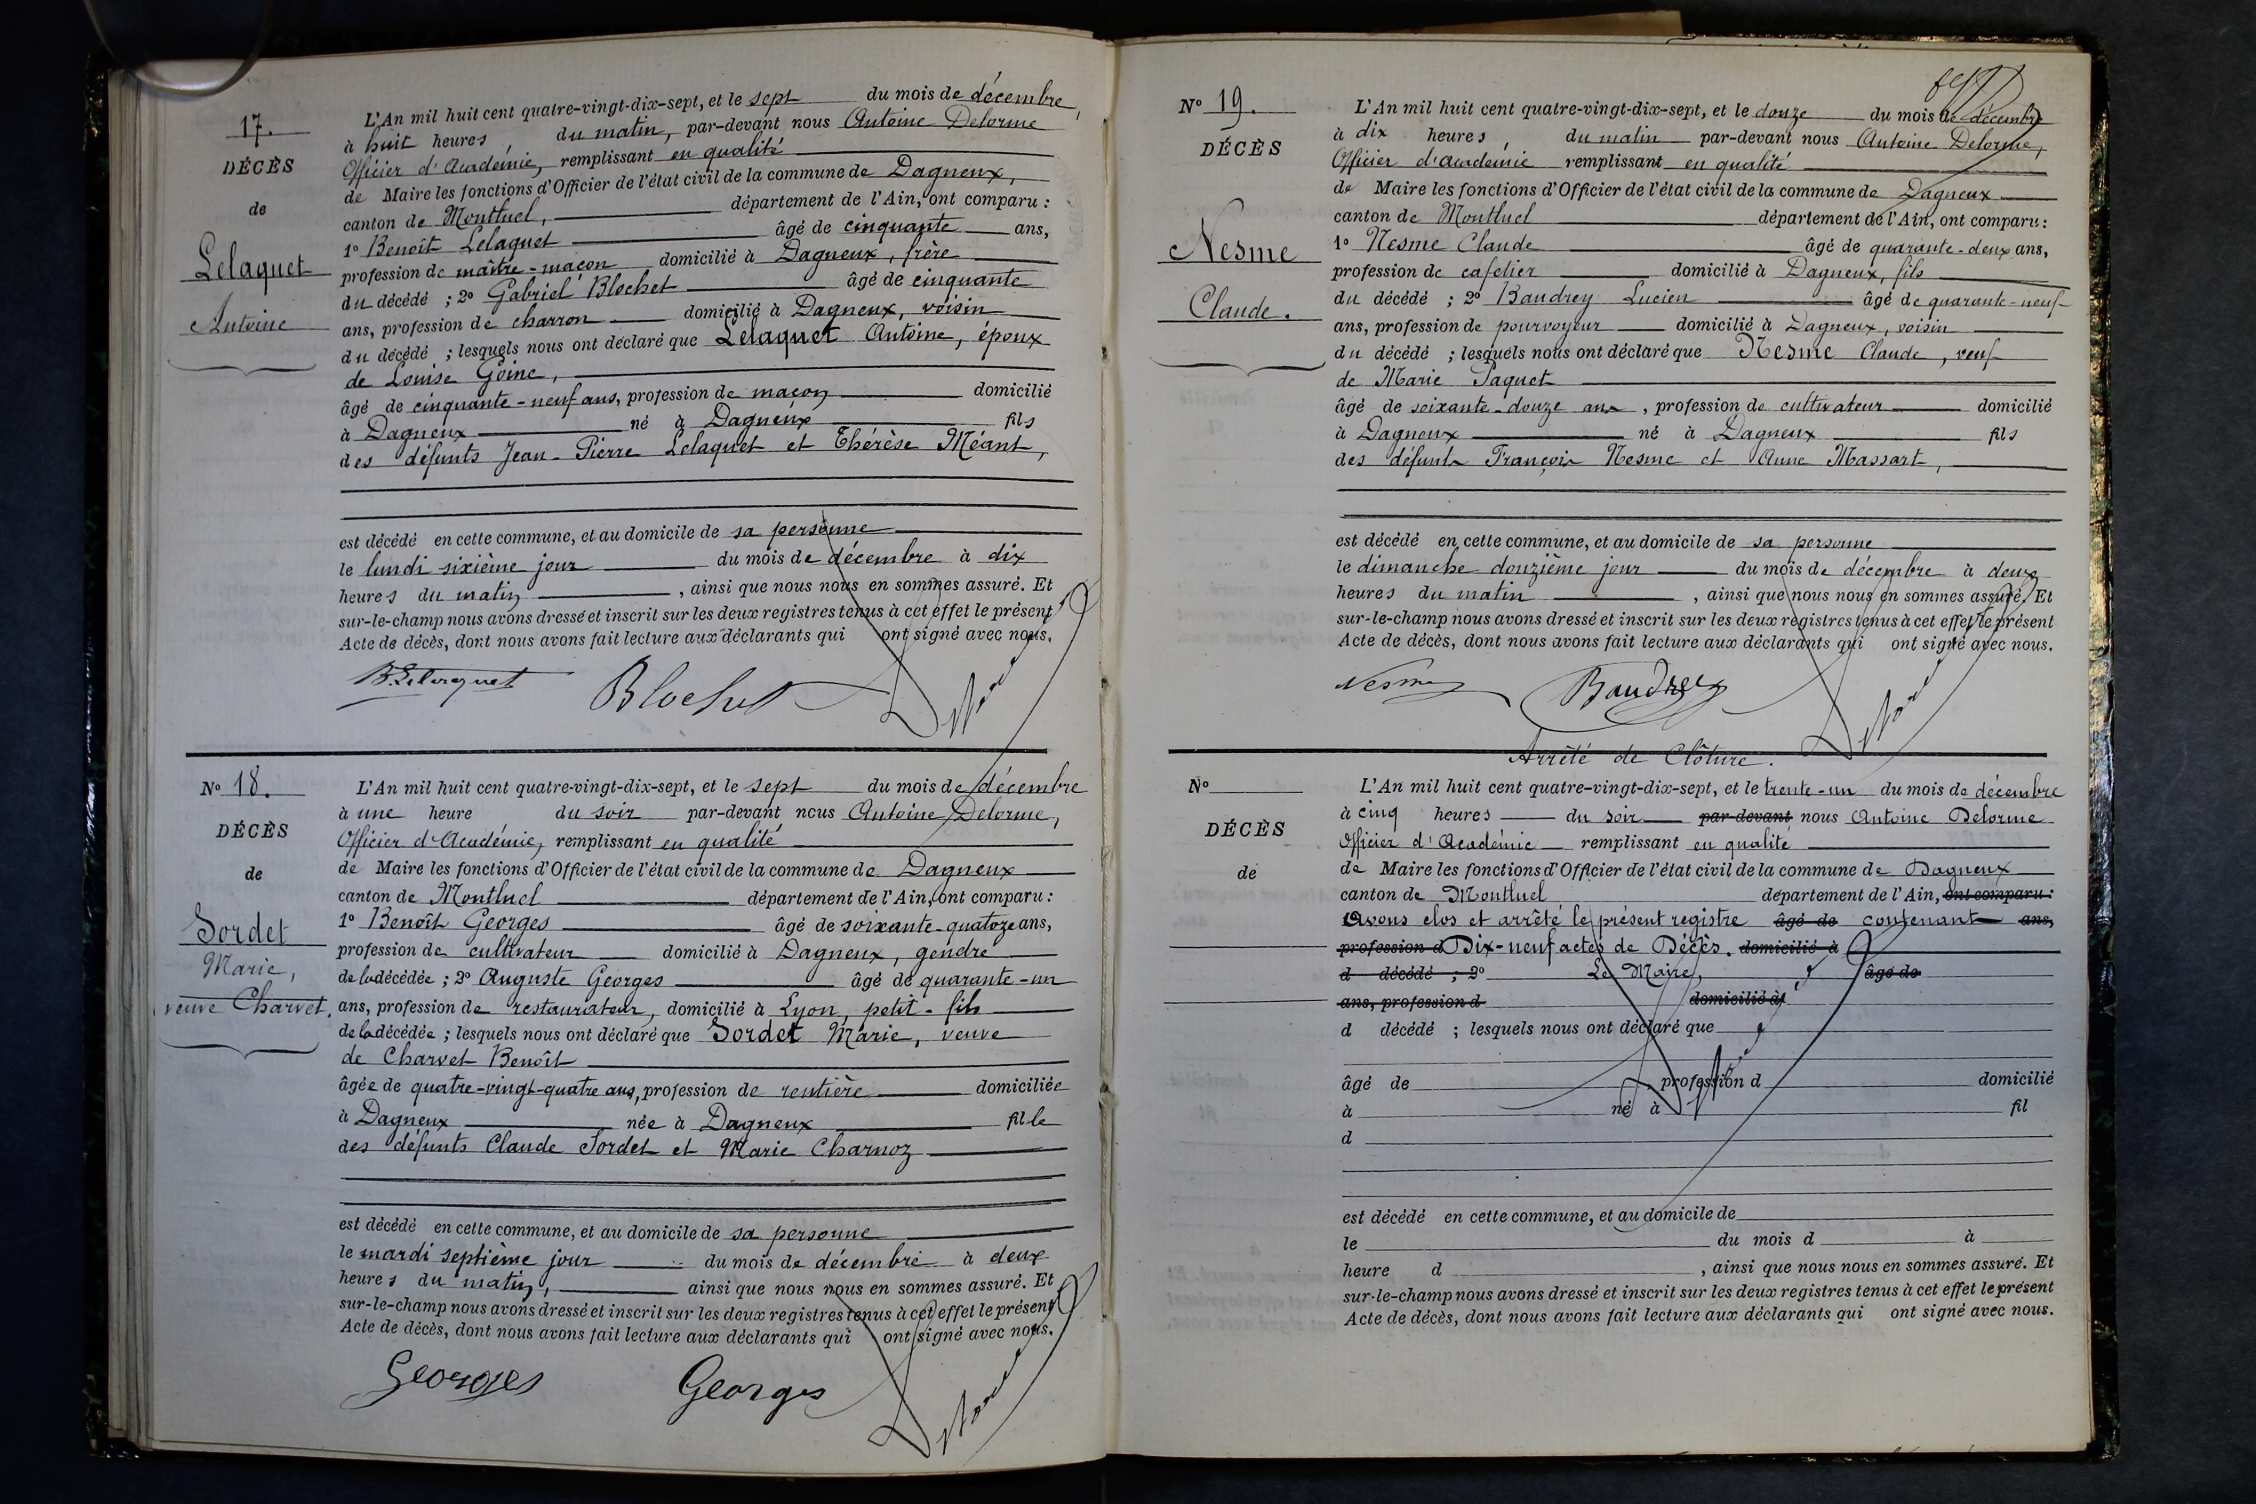 17.
DÉCÈS
de
Lelaquet
Antoine
L'An mil huit cent quatre-vingt-dix-sept, et le sept du mois de décembre,
à huit heures du matin, par-devant nous Antoine Delorme
Officier d'Académie, remplissant en qualité
de Maire les fonctions d'Officier de l'état civil de la commune de Dagneux,
canton de Montluel, département de l'Ain, ont comparu :
1º Benoît Lelaquet âgé de cinquante ans,
profession de maître-maçon domicilié à Dagneux, frère
du décédé ; 2º Gabriel Blochet âgé de cinquante
ans, profession de charron domicilié à Dagneux, voisin
du décédé ; lesquels nous ont déclaré que Lelaquet Antoine, époux
de Louise Goine,
âgé de cinquante-neuf ans, profession de maçon domicilié
à Dagneux né à Dagneux fils
des défunts Jean-Pierre Lelaquet et Thérèse Méant,
est décédé en cette commune, et au domicile de sa personne
le lundi sixième jour du mois de décembre à dix
heures du matin, ainsi que nous nous en sommes assuré. Et
sur-le-champ nous avons dressé et inscrit sur les deux registres tenus à cet effet le présent
Acte de décès, dont nous avons fait lecture aux déclarants qui ont signé avec nous.
B. Lelaquet Blochet Delorme
Nº 18.
DÉCÈS
de
Sordet
Marie,
veuve Charvet.
L'An mil huit cent quatre-vingt-dix-sept, et le sept du mois de décembre
à une heure du soir par-devant nous Antoine Delorme,
Officier d'Académie, remplissant en qualité
de Maire les fonctions d'Officier de l'état civil de la commune de Dagneux
canton de Montluel département de l'Ain, ont comparu :
1º Benoît Georges âgé de soixante-quatoze ans,
profession de cultivateur domicilié à Dagneux, gendre
de la décédée ; 2º Auguste Georges âgé de quarante-un
ans, profession de restaurateur, domicilié à Lyon, petit-fils
de la décédée ; lesquels nous ont déclaré que Sordet Marie, veuve
de Charvet Benoît
âgée de quatre-vingt-quatre ans, profession de rentière domiciliée
à Dagneux née à Dagneux fille
des défunts Claude Sordet et Marie Charnoz
est décédé en cette commune, et au domicile de sa personne
le mardi septième jour du mois de décembre à deux
heures du matin, ainsi que nous nous en sommes assuré. Et
sur-le-champ nous avons dressé et inscrit sur les deux registres tenus à cet effet le présent
Acte de décès, dont nous avons fait lecture aux déclarants qui ont signé avec nous.
Georges Georges Delorme
Nº 19.
DÉCÈS
de
Nesme
Claude.
L'An mil huit cent quatre-vingt-dix-sept, et le douze du mois de décembre
à dix heures, du matin par-devant nous Antoine Delorme,
Officier d'académie remplissant en qualité
de Maire les fonctions d'Officier de l'état civil de la commune de Dagneux
canton de Montluel département de l'Ain, ont comparu :
1º Nesme Claude âgé de quarante-deux ans,
profession de cafetier domicilié à Dagneux, fils
du décédé ; 2º Baudrey Lucien âgé de quarante-neuf
ans, profession de pourvoyeur domicilié à Dagneux, voisin
du décédé ; lesquels nous ont déclaré que Nesme Claude, veuf
de Marie Paquet
âgé de soixante-douze ans, profession de cultivateur domicilié
à Dagneux né à Dagneux fils
des défunts François Nesme et Anne Massart,
est décédé en cette commune, et au domicile de sa personne
le dimanche douzième jour du mois de décembre à deux
heures du matin, ainsi que nous nous en sommes assuré. Et
sur-le-champ nous avons dressé et inscrit sur les deux registres tenus à cet effet le présent
Acte de décès, dont nous avons fait lecture aux déclarants qui ont signé avec nous.
Nesme Baudrey Delorme
Arrêté de Clôture.
Nº
DÉCÈS
de
L'An mil huit cent quatre-vingt-dix-sept, et le trente-un du mois de décembre
à cinq heures du soir par-devant nous Antoine Delorme
Officier d'Académie remplissant en qualité
de Maire les fonctions d'Officier de l'état civil de la commune de Dagneux
canton de Montluel département de l'Ain, ont comparu :
Avons clos et arrêté le présent registre âgé de contenant ans,
profession d Dix-neuf actes de Décès. domicilié à
d décédé ; 2º Le Maire, âgé de
ans, profession d domicilié à
d décédé ; lesquels nous ont déclaré que
Delorme
âgé de profession d domicilié
à né à fil
d
est décédé en cette commune, et au domicile de
le du mois d à
heure d , ainsi que nous nous en sommes assuré. Et
sur-le-champ nous avons dressé et inscrit sur les deux registres tenus à cet effet le présent
Acte de décès, dont nous avons fait lecture aux déclarants qui ont signé avec nous.